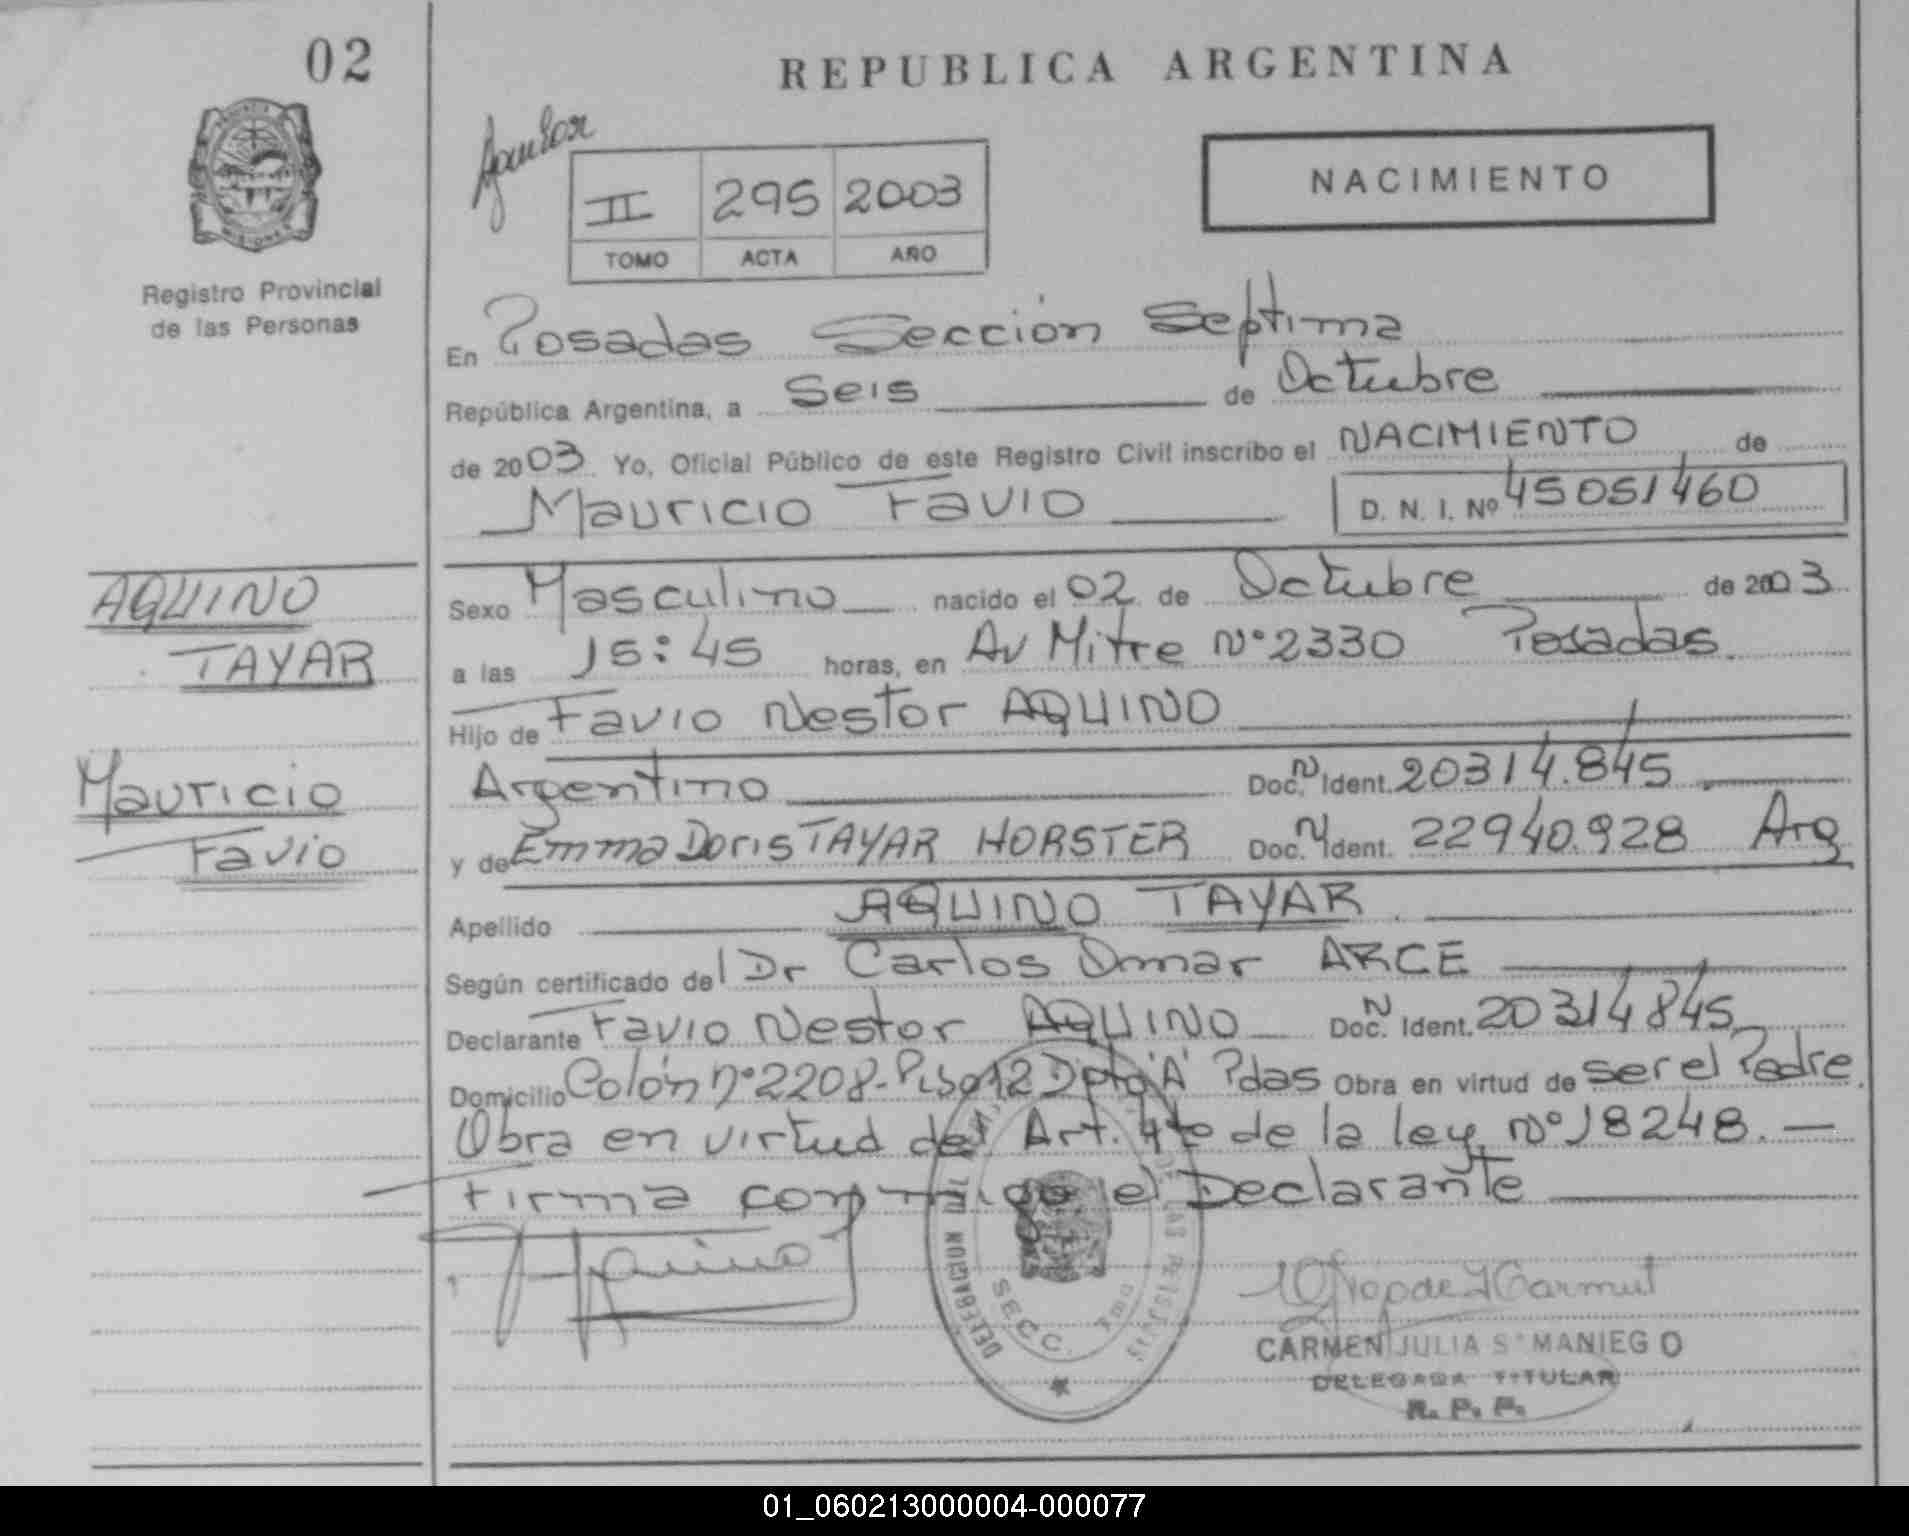 02
REPUBLICA ARGENTINA
PROVINCIA
MISIONES
Registro Provincial
de las Personas
II 295 2003
TOMO ACTA AÑO
NACIMIENTO
En Posadas Sección Septima
República Argentina, a Seis de Octubre
de 2003 Yo, Oficial Público de este Registro Civil inscribo el NACIMIENTO de
Mauricio Favio D. N. I. Nº 45051460
AQUINO
TAYAR
Mauricio
Favio
Sexo Masculino nacido el 02 de Octubre de 2003
a las 15:45 horas, en Av Mitre Nº 2330 Posadas.
Hijo de Favio Nestor AQUINO
Argentino Doc. N Ident. 20314.845
y de Emma Doris TAYAR HORSTER Doc. N Ident. 22940.928 Arg
Apellido AQUINO TAYAR
Según certificado del Dr Carlos Omar ARCE
Declarante Favio Nestor AQUINO Doc. N Ident. 20314845
Domicilio Colón nº 2208-Piso 12 Dpto 'A' Pdas Obra en virtud de ser el Padre.
Obra en virtud del Art. 4to de la ley Nº 18248.—
Firma conmigo el Declarante
Aquino
DELEGACION DE LAS PERSONAS
SECC. 7ma
CARMEN JULIA S. MANIEGO
DELEGADA TITULAR
R. P. P.
01_060213000004-000077